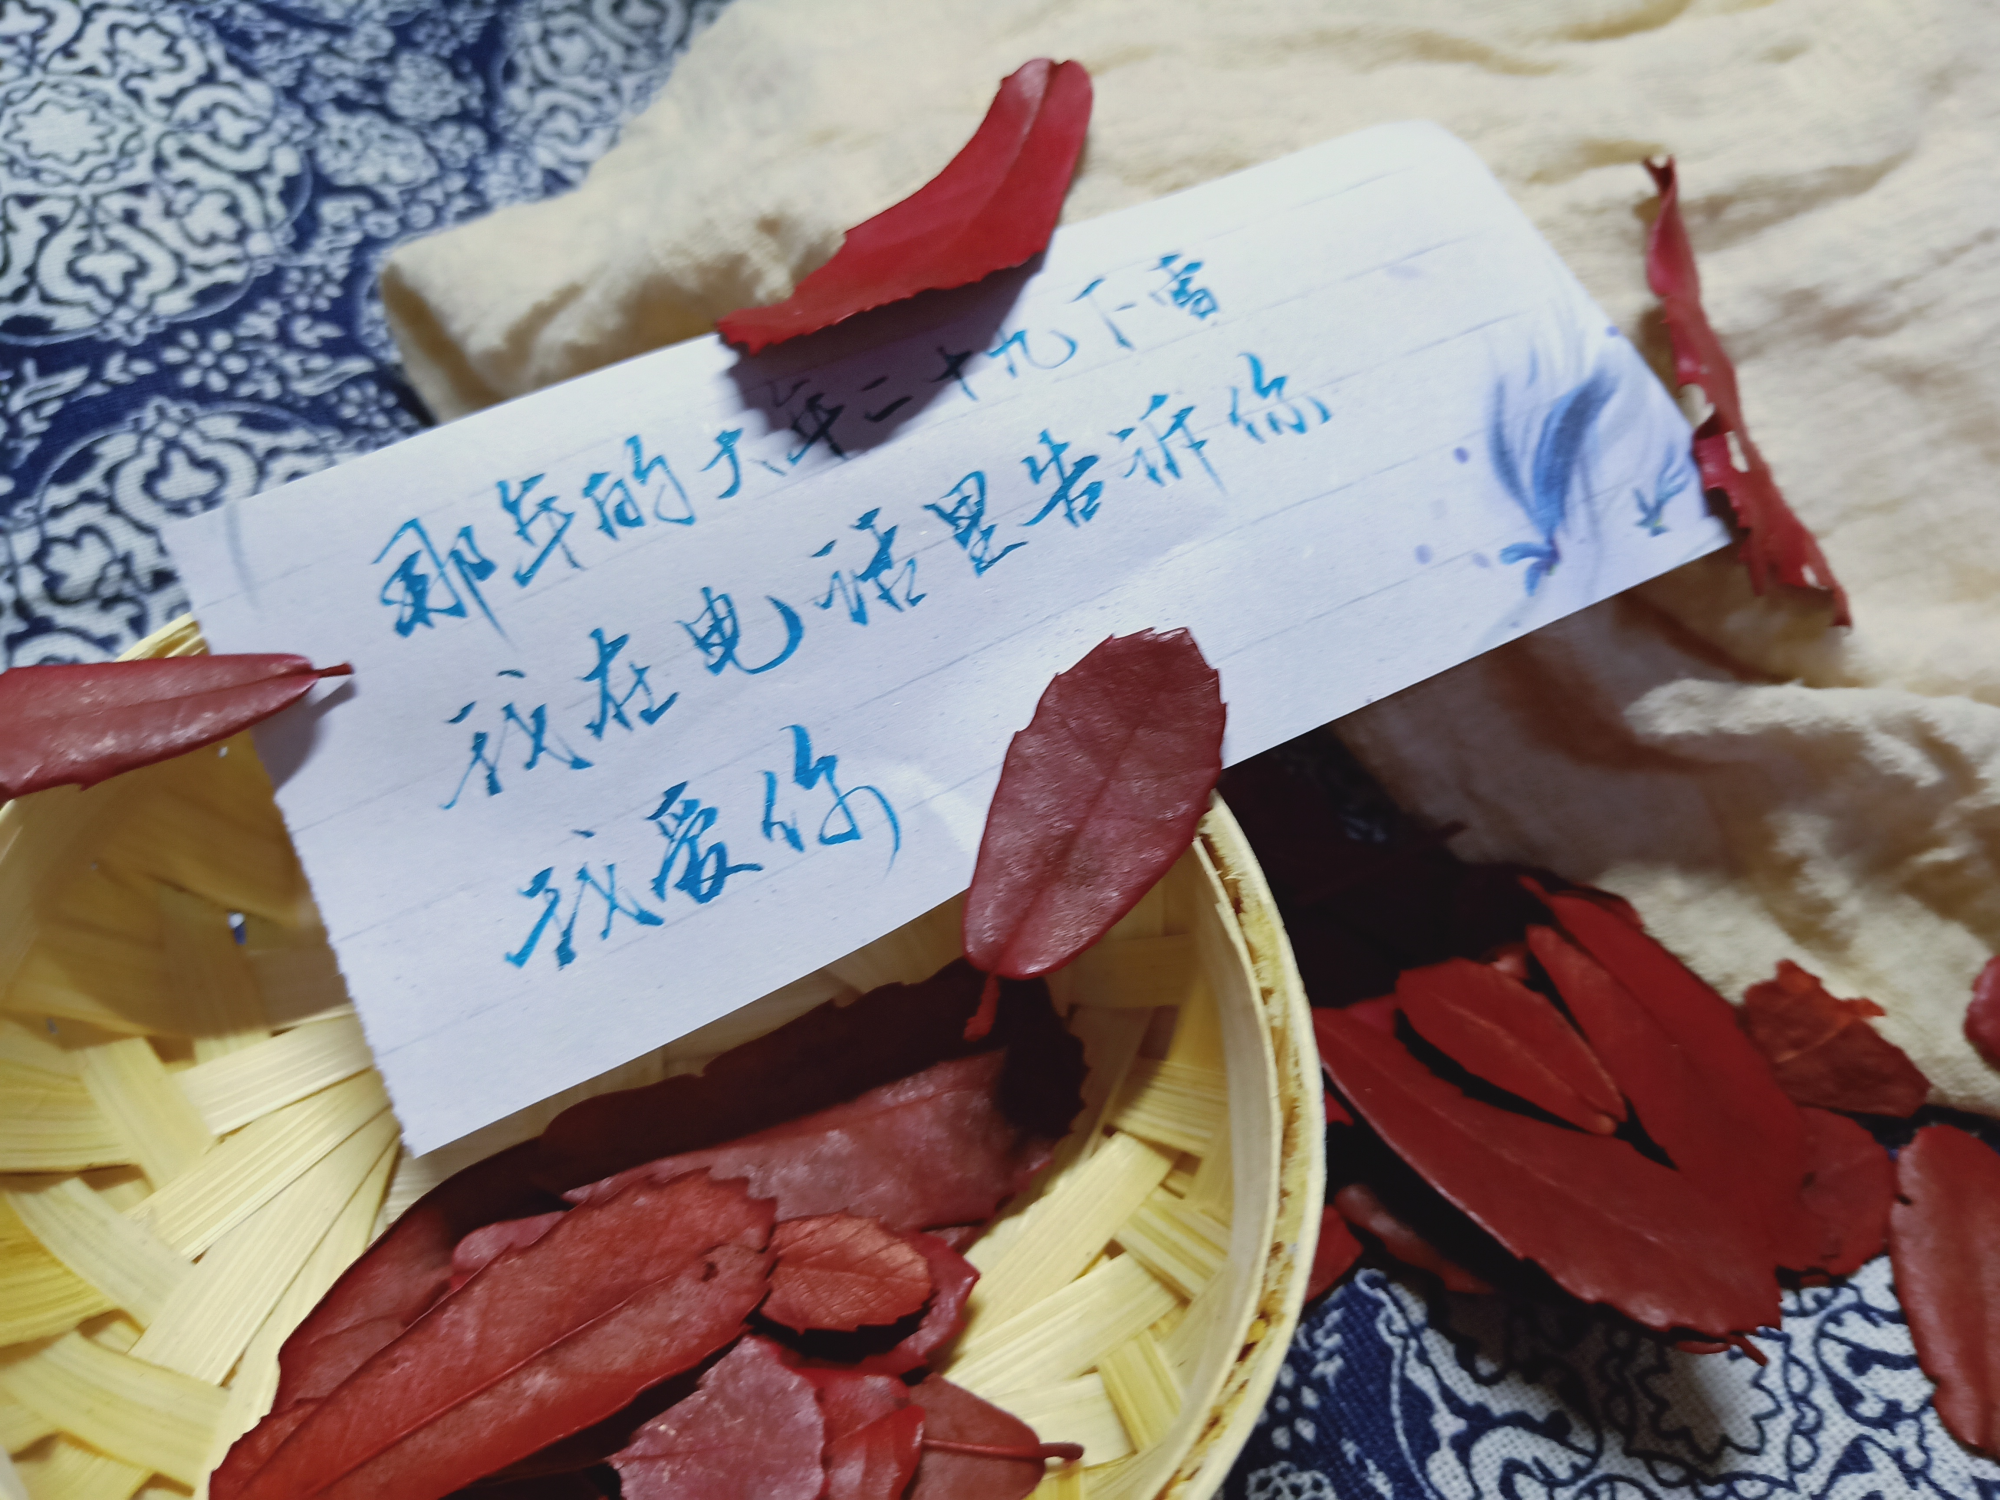 那年的大年二十九下雪
我在电话里告诉你
我爱你